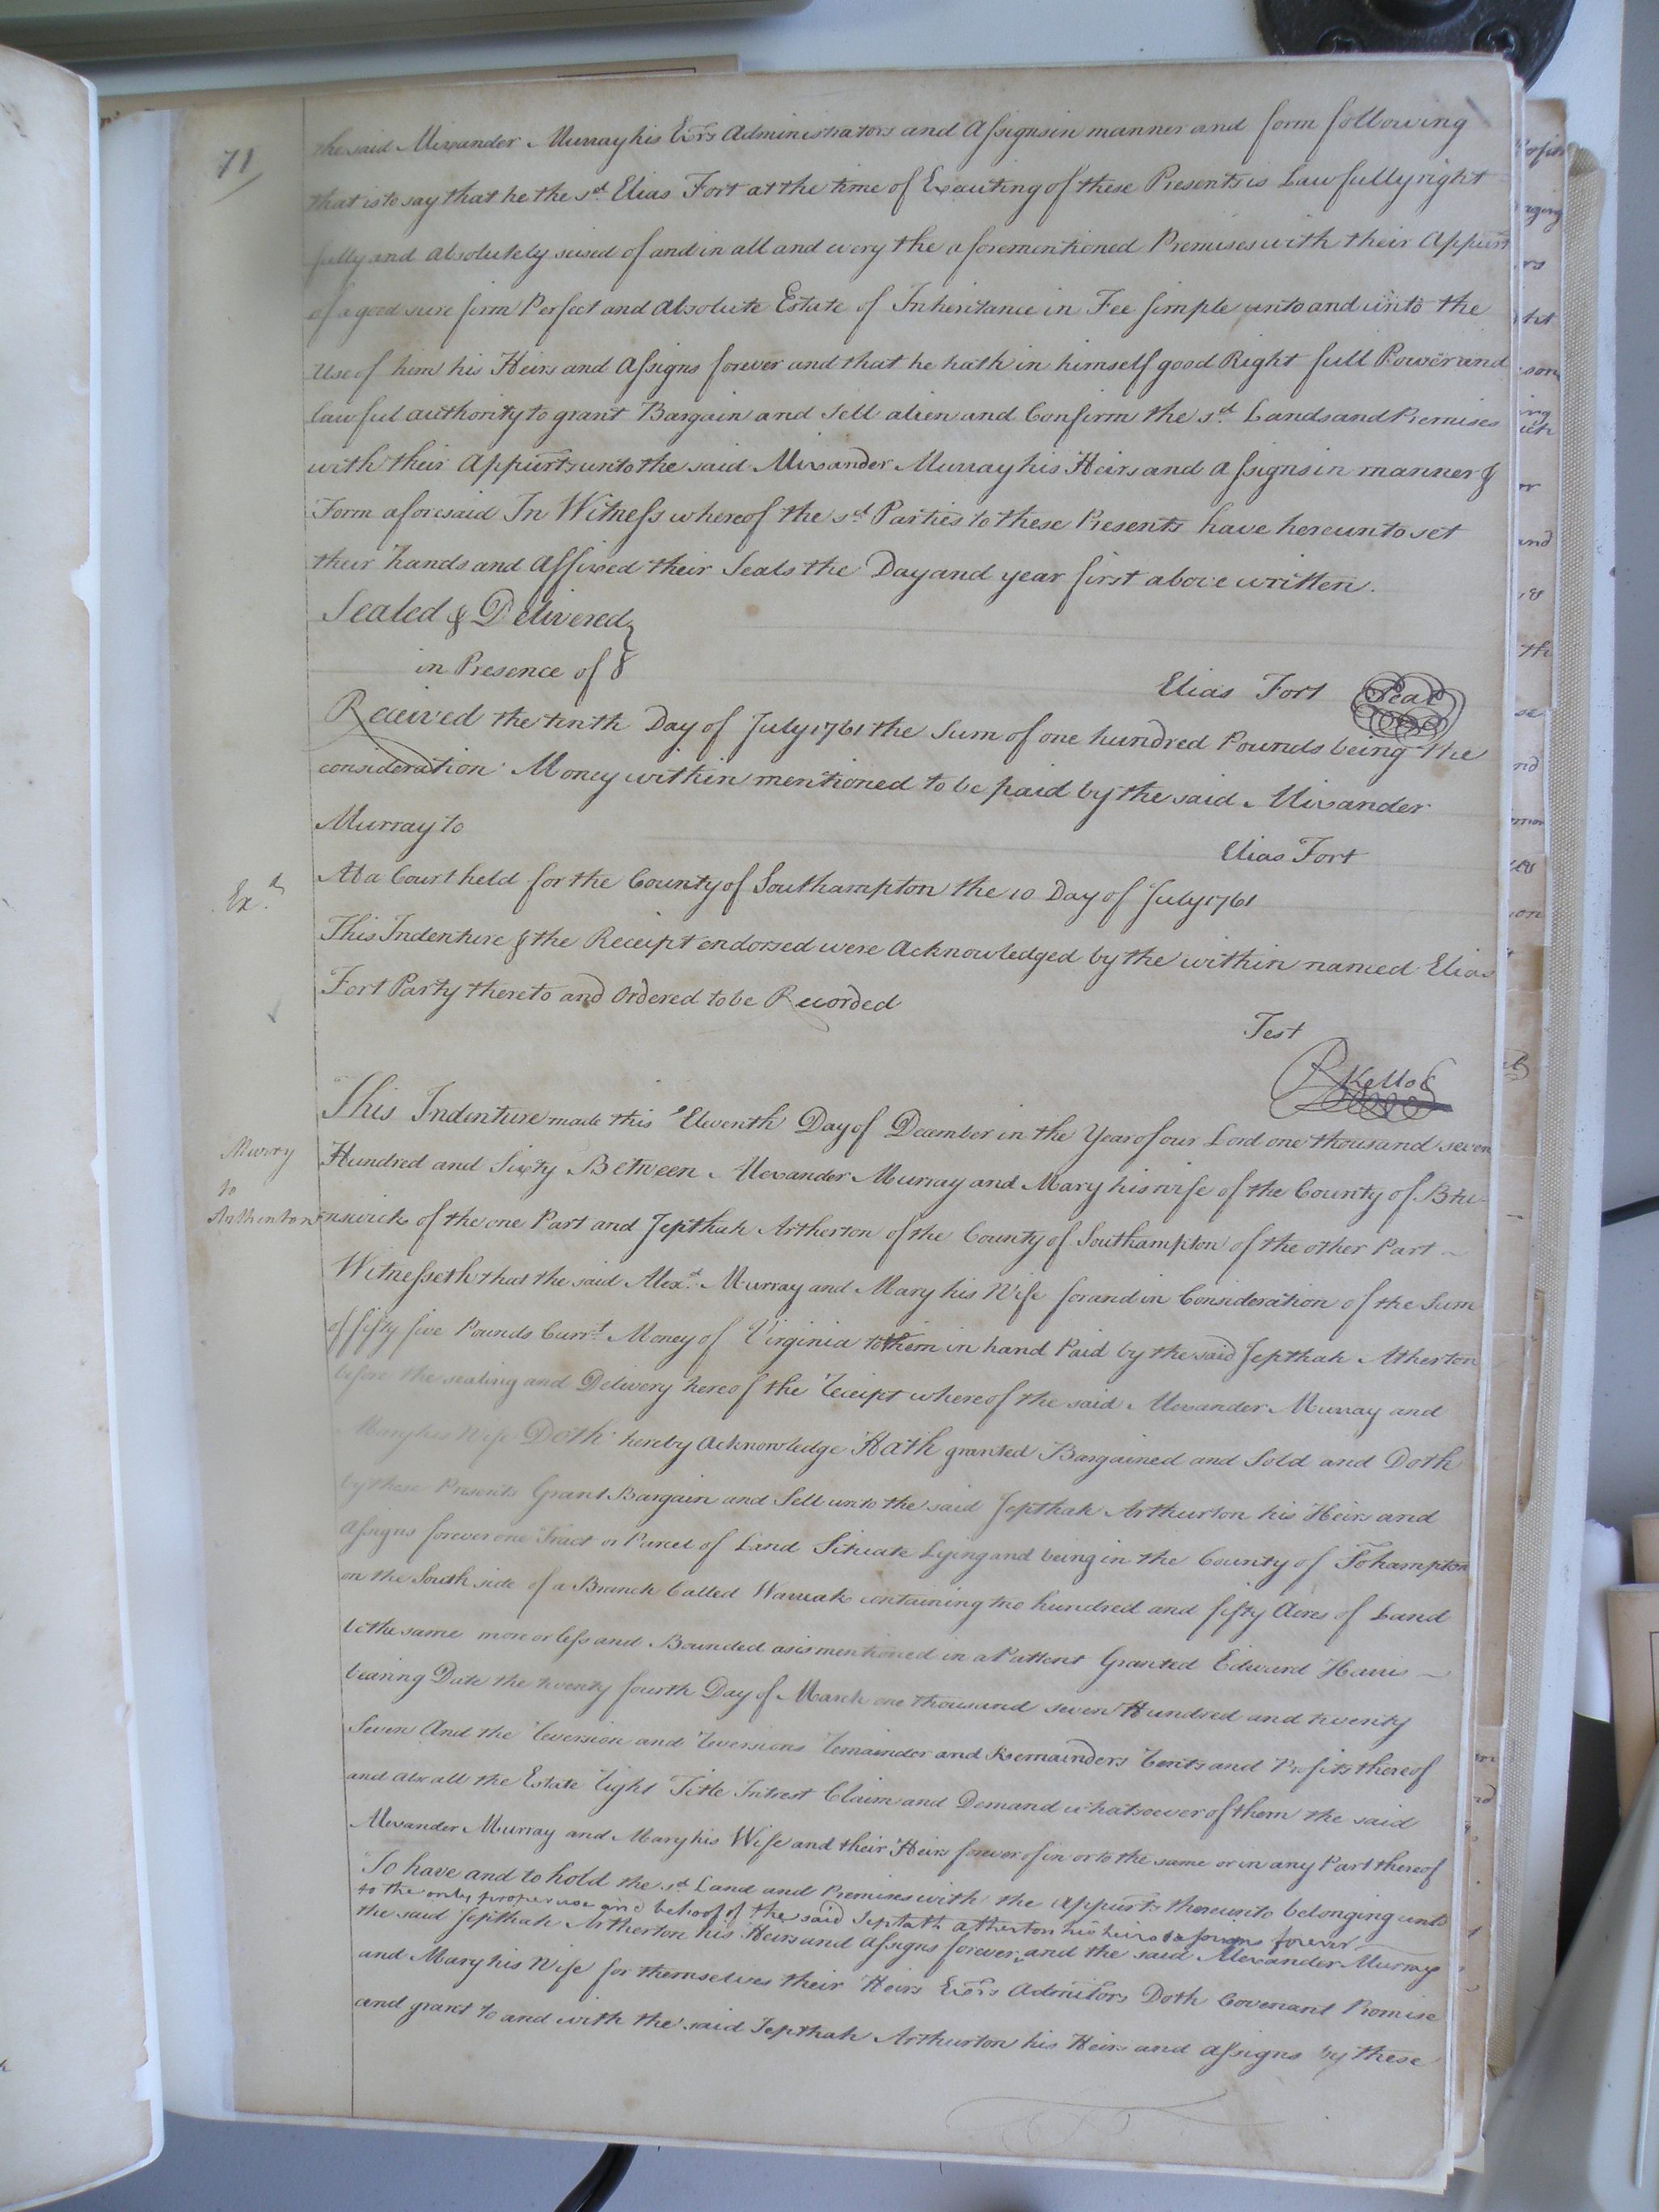 71
the said Alexander Murray his Exors Administrators and Assigns in manner and form following
that is to say that he the sd. Elias Fort at the time of Executing of these Presents is Lawfully right
fully and absolutely seised of and in all and every the aforementioned Premises with their Appurts
of a good sure firm Perfect and absolute Estate of Inheritance in Fee simple unto and unto the
Use of him his Heirs and Assigns forever and that he hath in himself good Right full Power and
lawful authority to grant Bargain and Sell alien and Confirm the sd. Lands and Premises
with their Appurts unto the said Alexander Murray his Heirs and Assigns in manner &
Form aforesaid In Witness whereof the sd. Parties to these Presents have hereunto set
their hands and Affixed their Seals the Day and year first above written.
Sealed & Delivered
in Presence of
Elias Fort Seal
Received the tenth Day of July 1761 the Sum of one hundred Pounds being the
consideration Money within mentioned to be paid by the said Alexander
Murray to
Elias Fort
Exd.
At a Court held for the County of Southampton the 10 Day of July 1761
This Indenture & the Receipt endorsed were Acknowledged by the within named Elias
Fort Party thereto and Ordered to be Recorded
Test
R Kello C
This Indenture made this Eleventh Day of December in the Year of our Lord one thousand seven
Murry
to
Artherton
Hundred and Sixty Between Alexander Murray and Mary his wife of the County of Bru-
nswick of the one Part and Jepthah Artherton of the County of Southampton of the other Part
Witnesseth that the said Alexd. Murray and Mary his Wife for and in Consideration of the Sum
of fifty five Pounds Currt. Money of Virginia to them in hand Paid by the said Jepthah Atherton
before the sealing and Delivery hereof the Receipt whereof the said Alexander Murray and
Mary his Wife Doth hereby Acknowledge Hath granted Bargained and Sold and Doth
by these Presents Grant Bargain and Sell unto the said Jepthah Arthurton his Heirs and
Assigns forever one Tract or Parcel of Land Situate Lying and being in the County of Sohampton
on the South side of a Branch Called containing two hundred and fifty Acres of Land
be the same more or less and Bounded as is mentioned in a Pattent Granted Edward Harris
bearing Date the twenty fourth Day of March one thousand seven Hundred and twenty
Seven And the Reversion and Reversions Remainder and Remainders Rents and Profits thereof
and also all the Estate Right Title Intrest Claim and Demand whatsoever of them the said
Alexander Murray and Mary his Wife and their Heirs forever of in or to the same or in any Part thereof
To have and to hold the sd. Land and Premises with the appurts thereunto belonging unto
to the only proper use and behoof of the said Jeptath atherton his heirs & assigns forever
the said Jepthah Artherton his Heirs and Assigns forever, and the said Alexander Murray
and Mary his Wife for themselves their Heirs Exors Admitors Doth Covenant Promise
and grant to and with the said Jepthah Arthurton his Heirs and Assigns by these